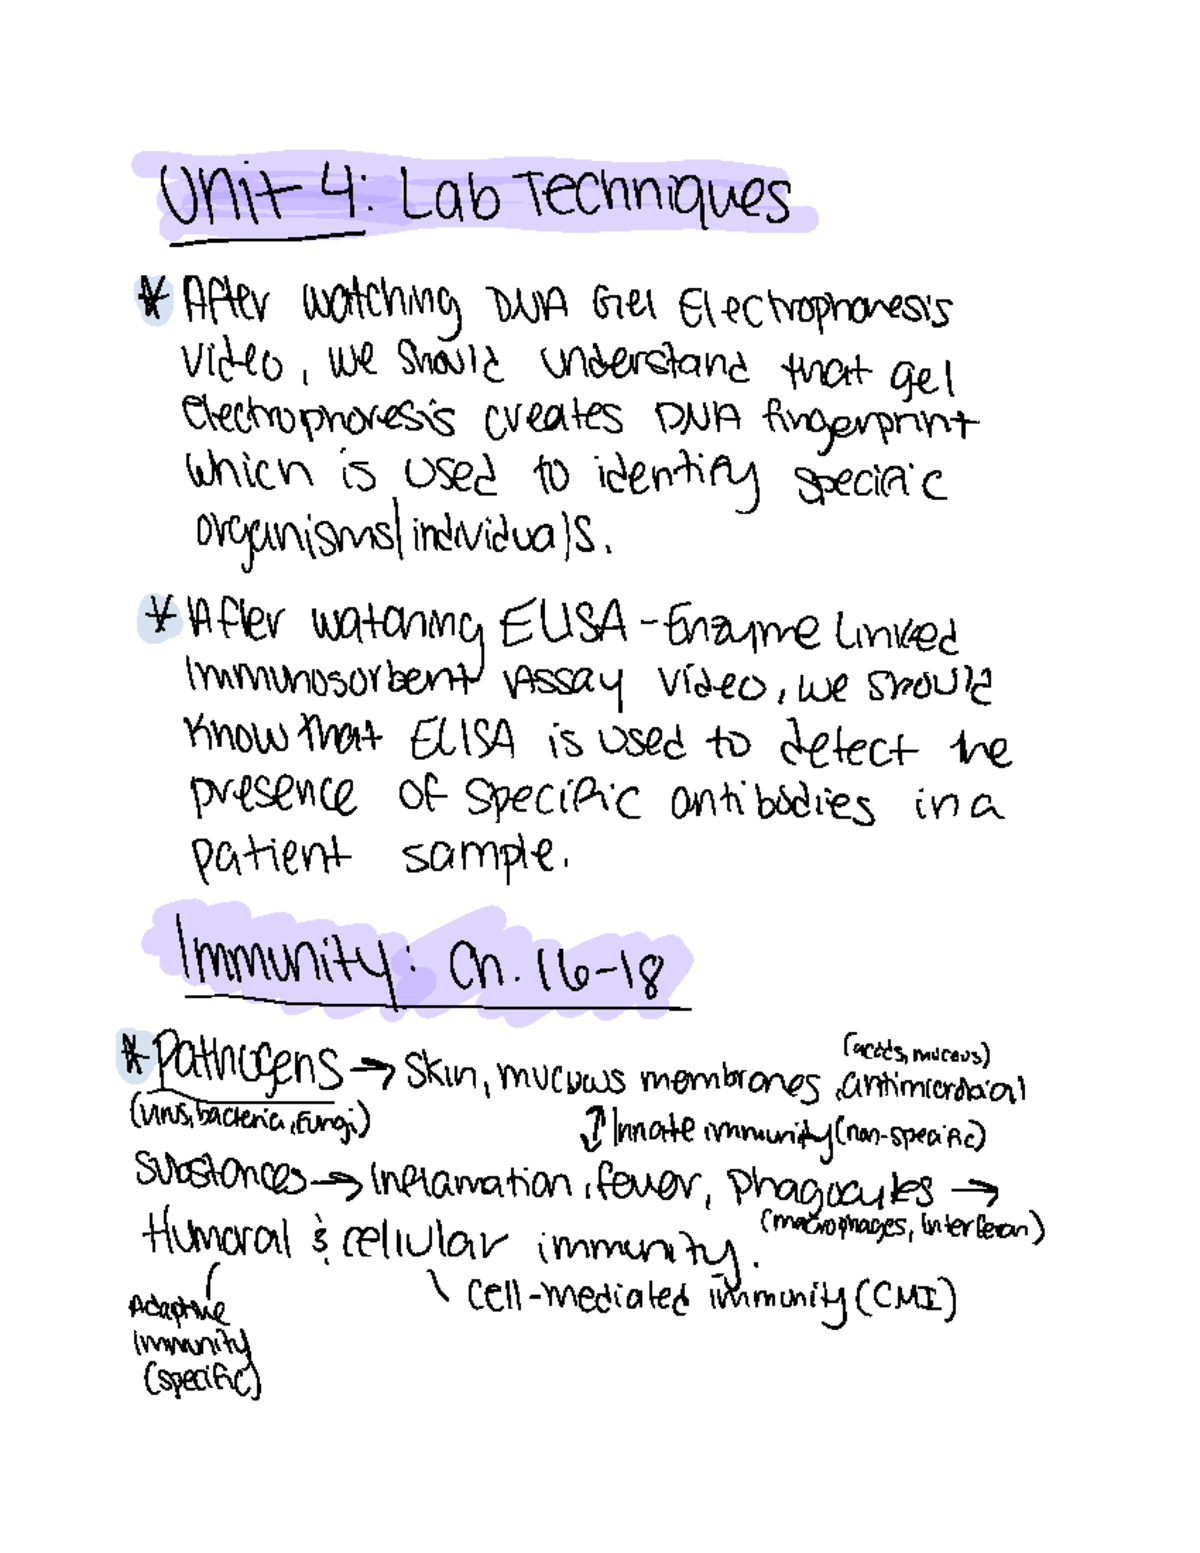 Unit 4: Lab Techniques
* After watching DNA Gel Electrophoresis
video, we should understand that gel
electrophoresis creates DNA fingerprint
which is used to identify specific
organisms/individuals.
* After watching ELISA - Enzyme Linked
Immunosorbent Assay video, we should
know that ELISA is used to detect the
presence of specific antibodies in a
patient sample.
Immunity: Ch. 16-18
(acids, mucous)
* Pathogens → skin, mucuws membranes, antimicrobial
(virus, bacteria, fungi)
↕ Innate immunity (non-specific)
substances → Inflamation, fever, phagocytes →
(macrophages, interferon)
Humoral & cellular immunity.
Cell-mediated immunity (CMI)
Adaptive
immunity
(specific)